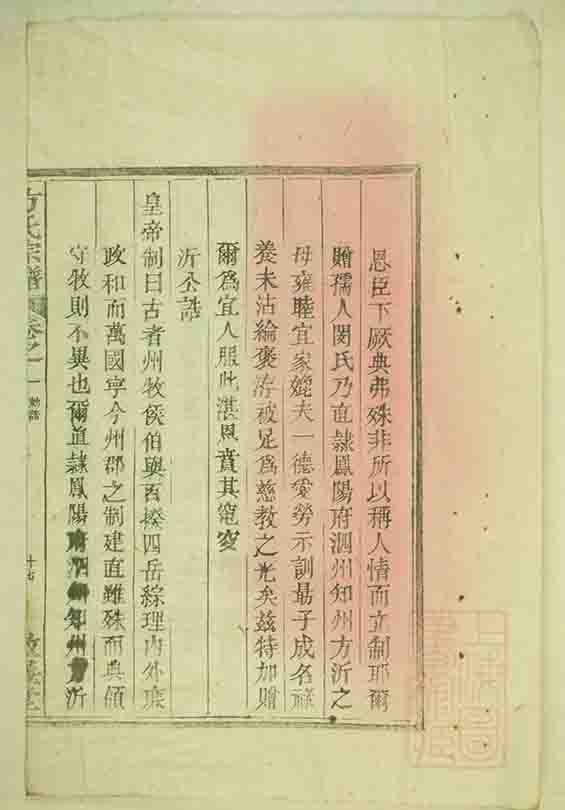 恩臣下厥典弗殊非所以稱人情而立制耶爾
贈孺人閔氏乃直隸鳳陽府泗州知州方沂之
母雍睦宜家媲夫一德愛勞示訓勗子成名祿
養未沾綸褒洊被足爲慈教之光矣茲特加贈
爾爲宜人服此湛恩賁其窀穸
沂公誥
皇帝制曰古者州牧侯伯與百揆四岳綜理內外庶
政和而萬國寧今州郡之制建直雖殊而典領
守牧則不異也爾直隸鳳陽府泗州知州方沂
方氏宗譜
卷之一
十七